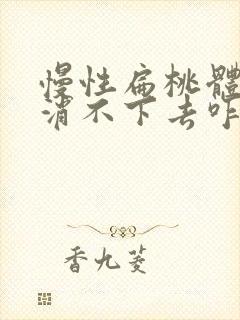 慢性扁桃體
消不下去咋
香九菱